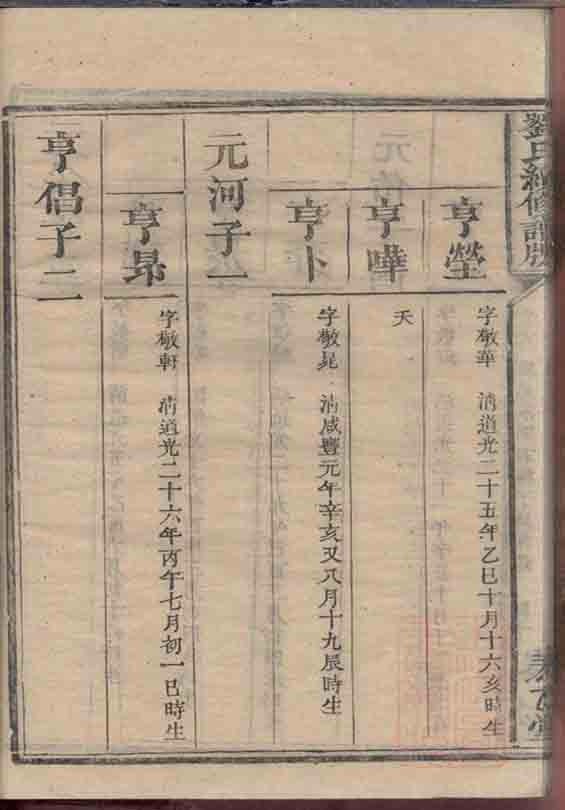 劉氏續修譜牒
亨瑩
字敬華 清道光二十五年乙巳十月十六亥時生
亨嘩
夭
亨卜
字敬晁 清咸豐元年辛亥又八月十九辰時生
元河子一
亨昴
字敬軒 清道光二十六年丙午七月初一巳時生
亨倡子二